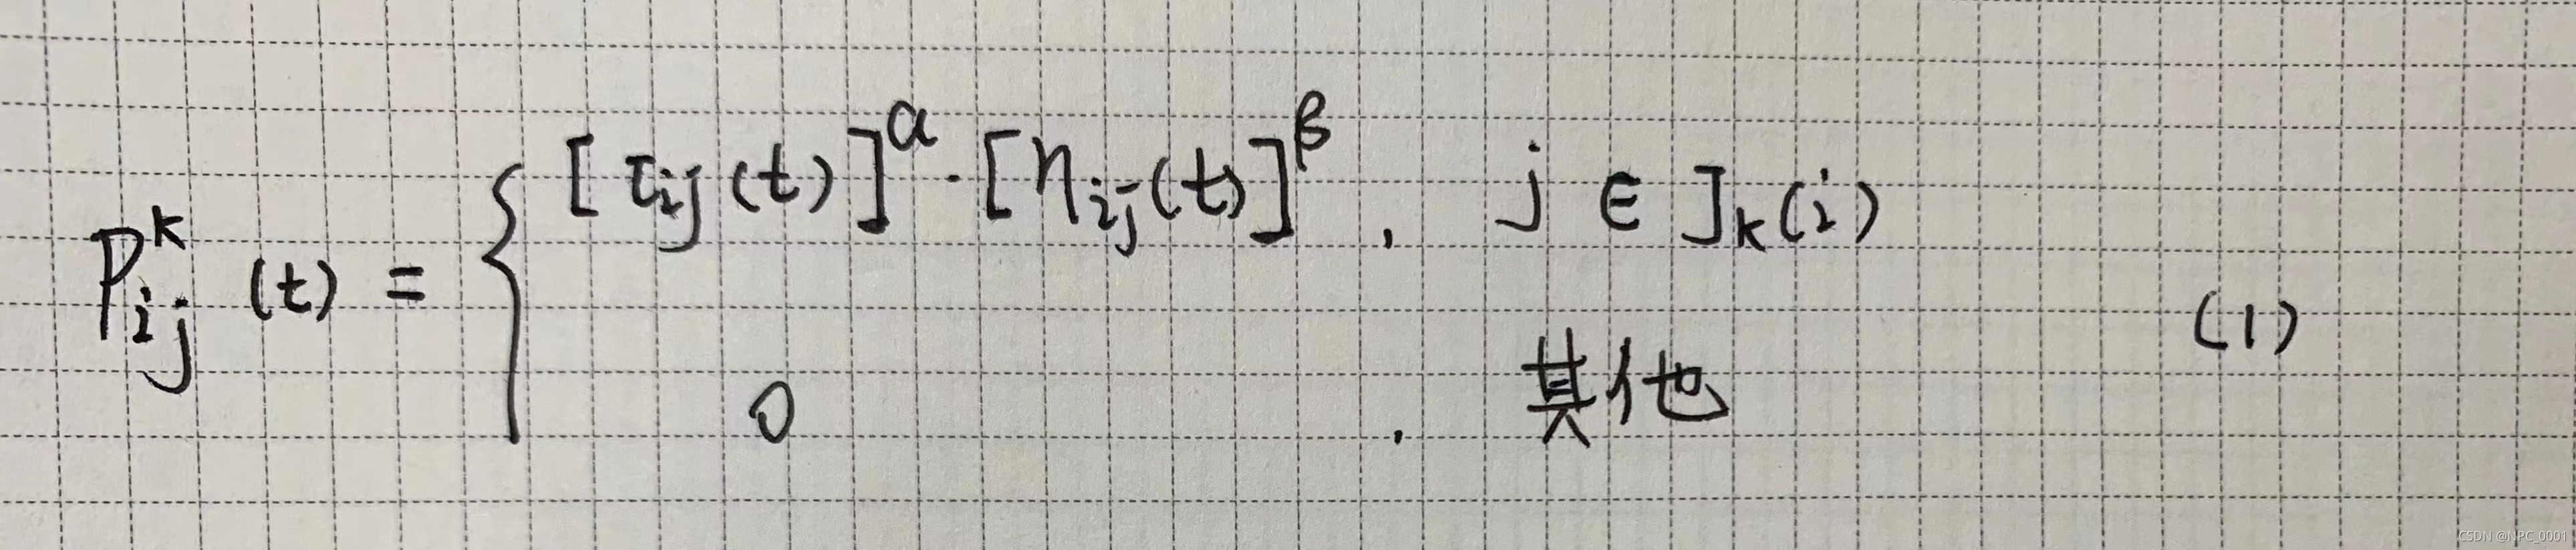 P_{ij}^{k}(t) = { [τ_{ij}(t)]^{α} · [η_{ij}(t)]^{β} , j ∈ J_{k}(i)
0 , 其他 (1)
CSDN @NPC_0001